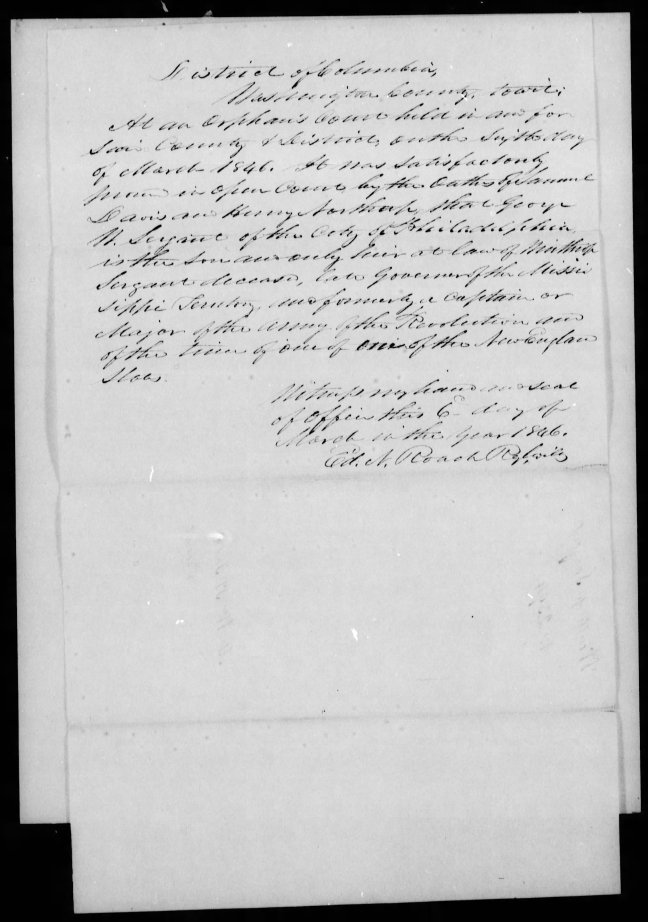 District of Columbia,
Washington County, towit;
At an Orphans Court held in and for
said County & District, on the Sixth day
of March 1846. It was satisfactorily
proven in open Court by the Oaths of Samuel
Davis and Henry Northrop, that George
W. Sergant of the City of Philadelphia
is the son and only heir at law of Winthrop
Sergant deceased, late Governor of the Missis
sippi Territory, and formerly a Captain or
Major of the Army of the Revolution and
of the time of one of the New England
States.
Witness my hand and seal
of office this 6th day of
March in the year 1846.
Ed. N. Roach Reg. wills